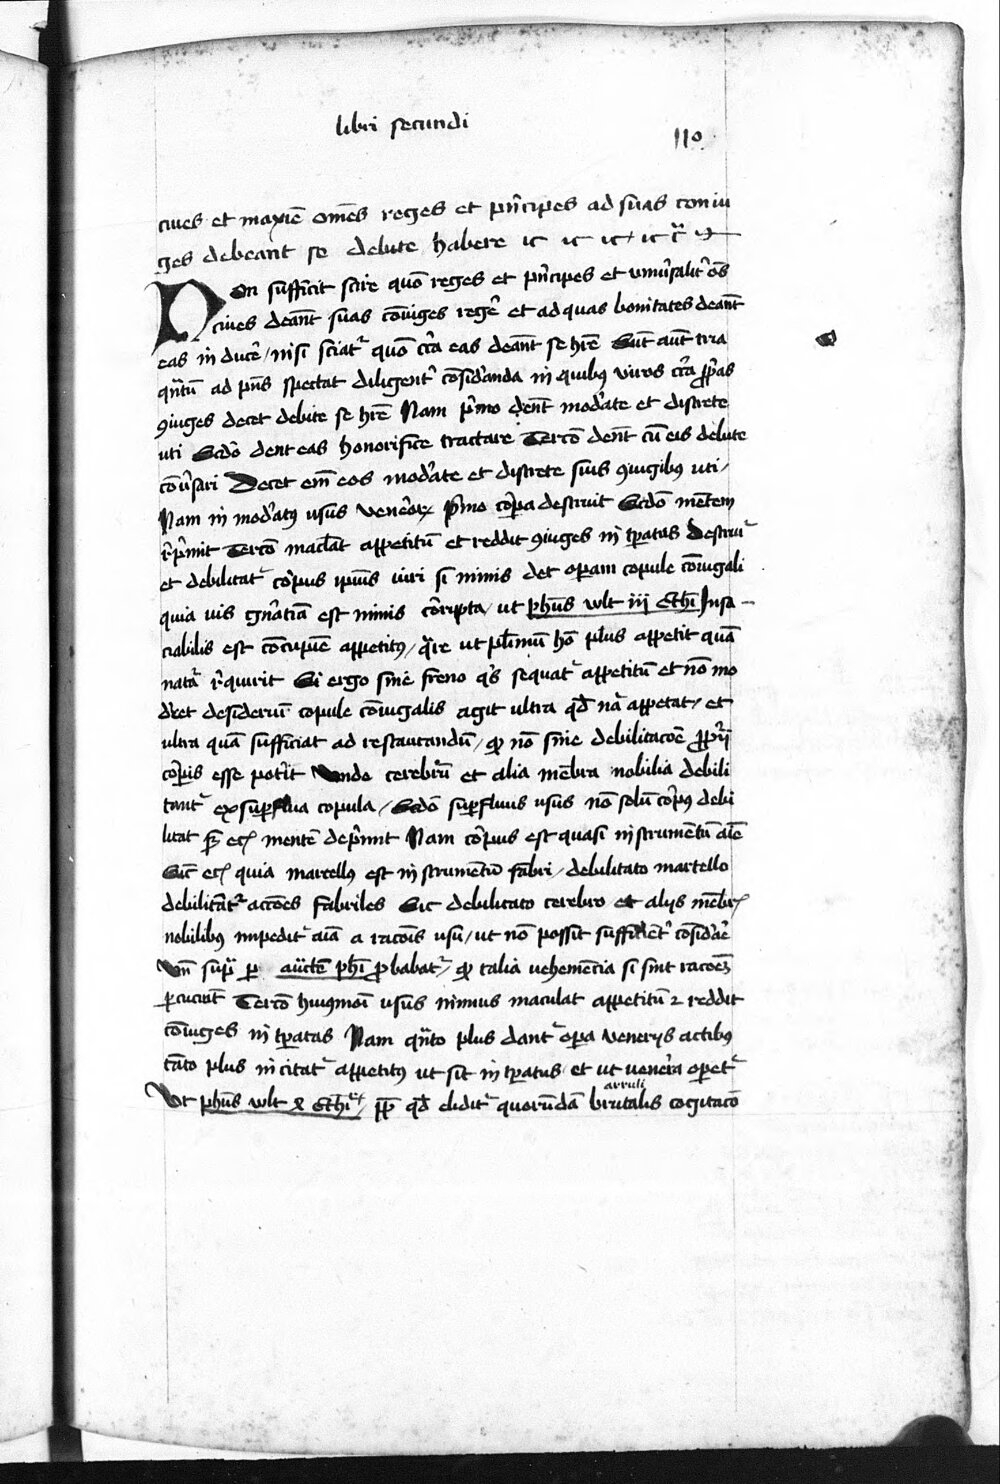 libri secundi
110
ciues et maxīe om̄es reges et pn̄cipes ad suas coniu
ges debeant se debite habere
Non sufficit scire quō reges et pn̄cipes et vniuersalit' oēs
ciues deant̄ suas cōiuges reger̄ et ad quas bonitates deant̄
eas in ducē / nisi sciat' quō cir̄a eas deant̄ se hr̄e Sūt aūt tria
qn̄tū ad pn̄s spectat diligent' cōsid'anda in quibꝰ viros cir̄a ꝓp̄as
ꝯiuges decet debite se hr̄e Nam p'mo den̄t mod'ate et discrete
uti Scdō dent eas honorifice tractare Tercō den̄t cū eis debite
cōu'sari Decet em̄ eos mod'ate et discrete suis ꝯiugibꝰ uti /
Nam in mod'atꝰ usus veneroꝝ P'mo corpa destruit Scdō mētem
rep'mit Tercō maclat appetitū et reddit ꝯiuges in tp̄atas Destruit'
et debilitat' corpus ipsius uiri si nimis det operam copule cōiugali
quia uis gn̄atiua est nimis corrupta / ut ph̄us vlt iij Eth̄i Insa
ciabilis est cōcupīe appetitꝰ / quare ut pl̄imū hō plus appetit quā
natā requirit Si ergo sine freno q's sequat' appetitū et nō mo
d'et desideriū copule cōiugalis agit ultra qd̄ nā appetat / et
ultra quā sufficiat ad restaurandū / qꝫ nō sine debilitacōe ꝓp̄ij
corpis esse pot'it Vnde cerebrū et alia mēbra nobilia debili
tant' ex supflua copula / Scdō supfluus usus nō solū corpꝰ debi
litat sꝫ eciā mentē dep'mit Nam corpus est quasi in strumētū aīe
Sic eciā quia martellꝰ est in strumētū fabri / debilitato martello
debilitāt' accōes fabriles Sic debilitato cerebro et alijs mēbris
nobilibꝰ impedit' aīa a racōis usu / ut nō possit sufficient' cōsid'are
Vn̄ sup' p auctē ph̄i ꝓbabat' / qꝫ talia uehemēcia si sint racōeꝫ
ꝑcuciūt Tercō huiꝯmōi usus nimius maculat appetitū ⁊ reddit
cōiuges in tp̄atas Nam qn̄to plus dant' opa venerijs actibꝰ
tāto plus in citat' appetitꝰ ut sit in tp̄atus et ut venera opet'
Vt ph̄us vlt Eth̄i / ꝓp̄ qd̄ clidit' quorūdā birutalis cogitacō
arruli